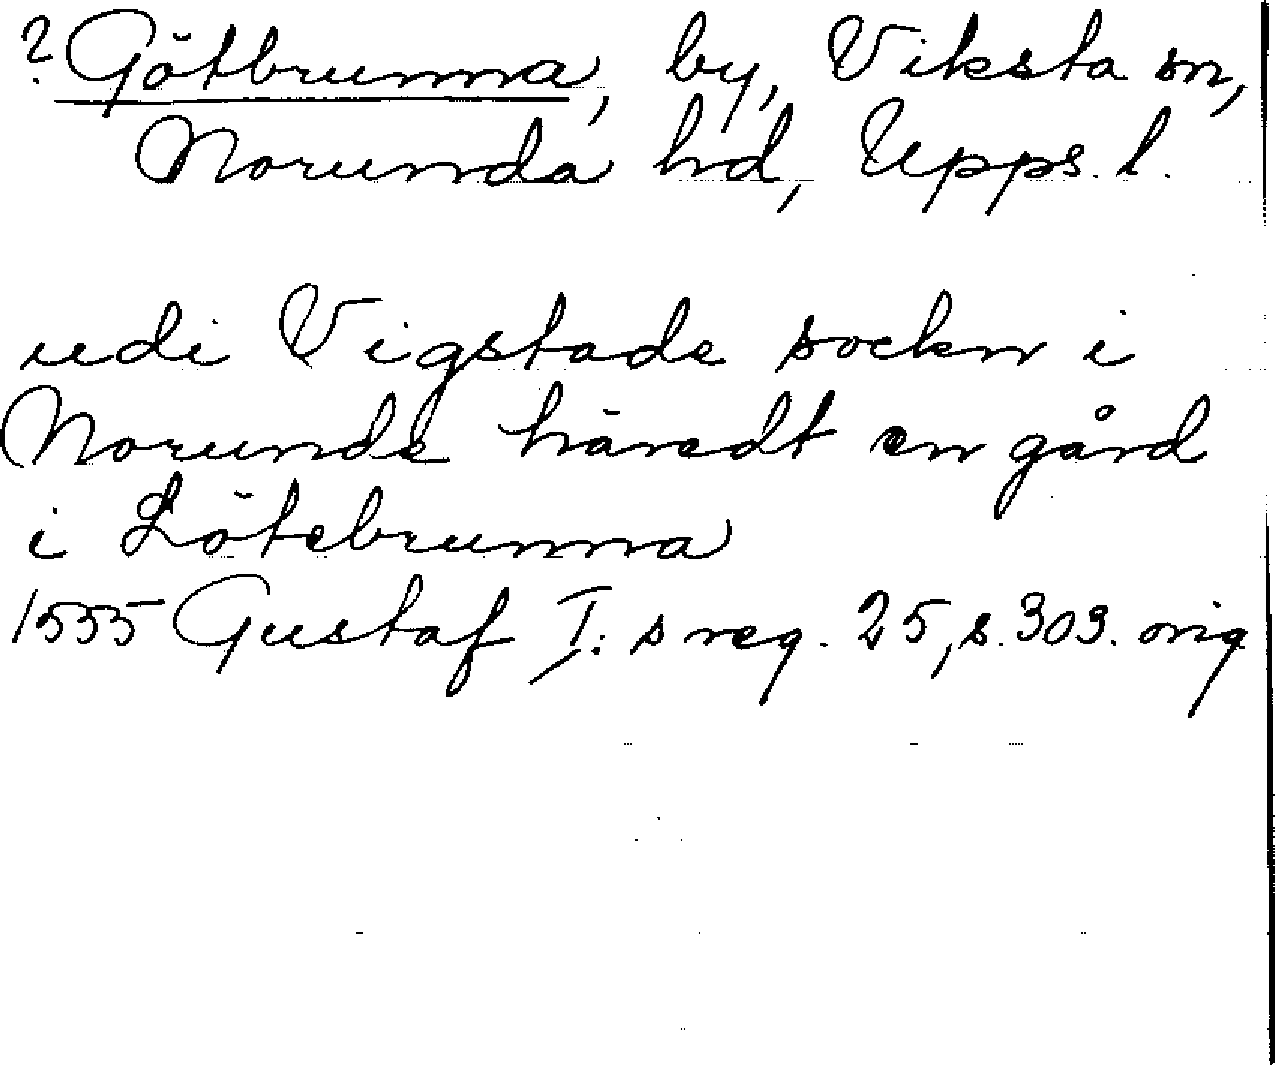 ? Götbrunna, by, Viksta sn,
Norunda hd, Upps. l.
udi Vigstade sockn i
Norunde häredt en gård
i Lötebrunna
1555 Gustaf I:s reg. 25, s. 303. orig